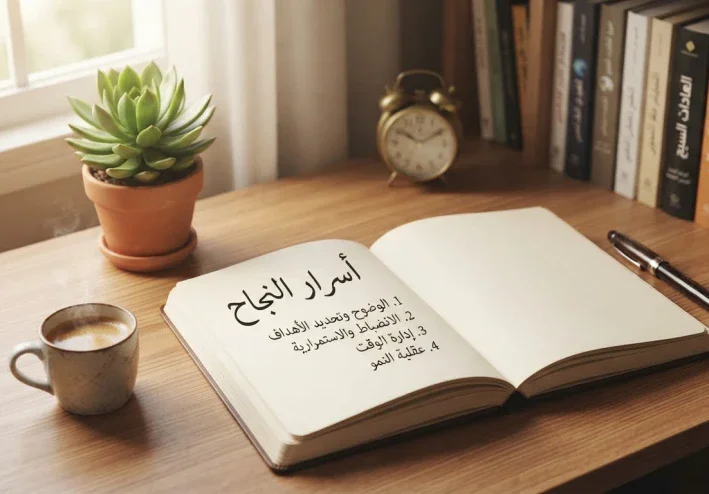 أسرار النجاح
1. الوضوح وتحديد الأهداف
2. الانضباط والاستمرارية
3. إدارة الوقت
4. عقلية النمو
العادات السبع